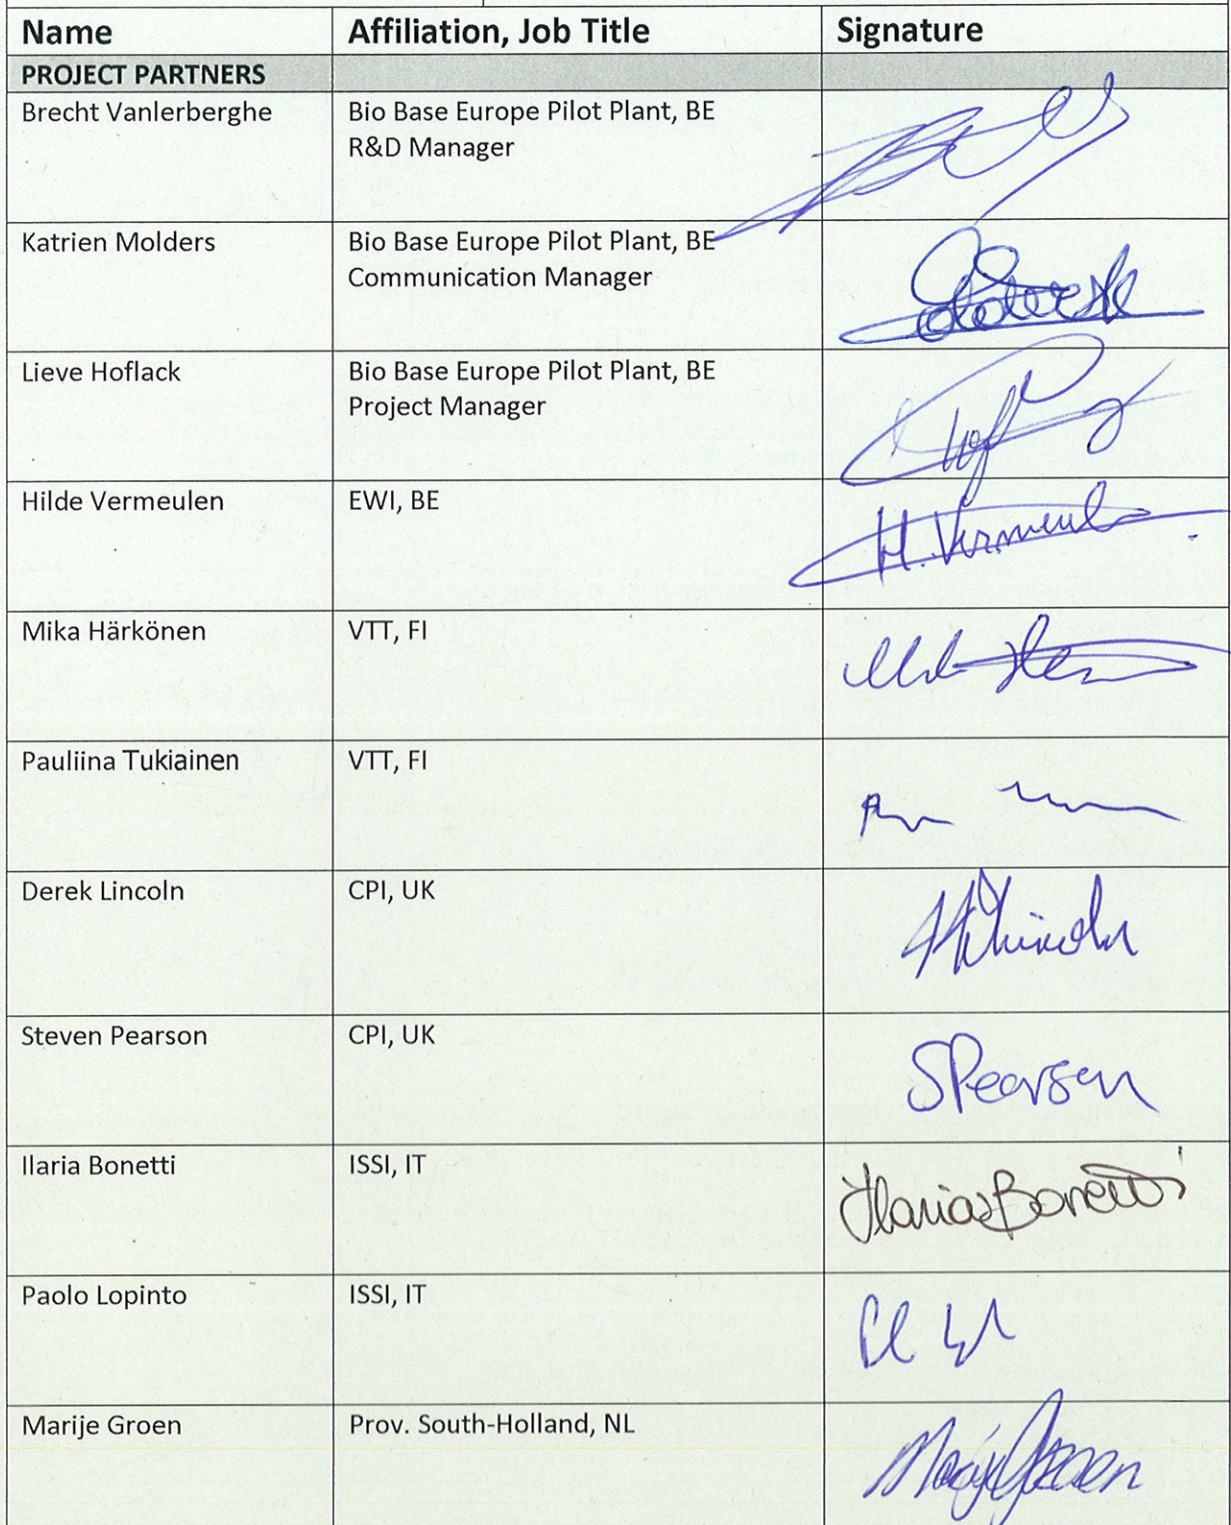 Name Affiliation, Job Title Signature
PROJECT PARTNERS
Brecht Vanlerberghe Bio Base Europe Pilot Plant, BE
R&D Manager
Katrien Molders Bio Base Europe Pilot Plant, BE
Communication Manager
Lieve Hoflack Bio Base Europe Pilot Plant, BE
Project Manager
Hilde Vermeulen EWI, BE
H. Vermeulen
Mika Härkönen VTT, FI
Pauliina Tukiainen VTT, FI
Derek Lincoln CPI, UK
Steven Pearson CPI, UK
SPearson
Ilaria Bonetti ISSI, IT
Ilaria Bonetti
Paolo Lopinto ISSI, IT
Marije Groen Prov. South-Holland, NL
Marije Groen